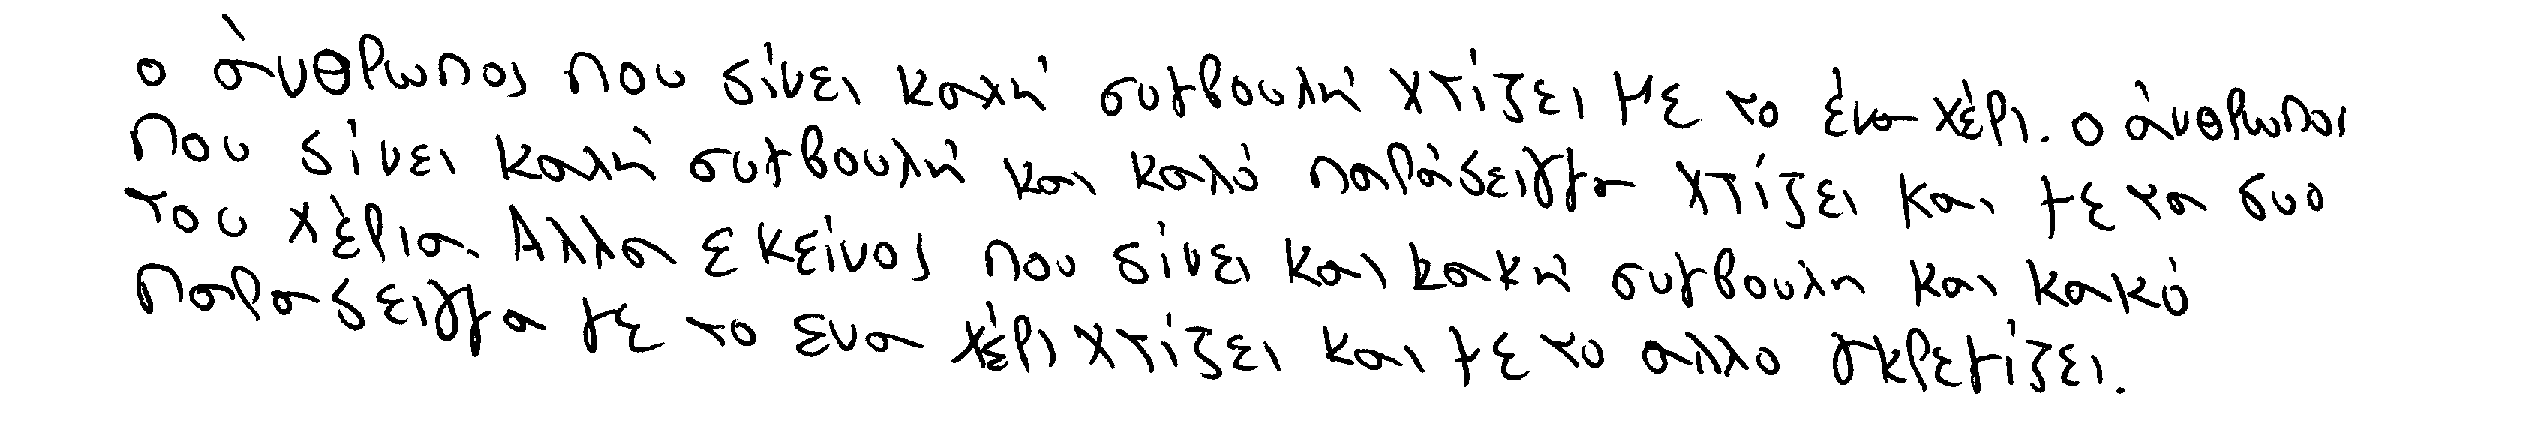 ο άνθρωπος που δίνει καλή συμβουλή χτίζει με το ένα χέρι. ο άνθρωπος
που δίνει καλή συμβουλή και καλό παράδειγμα χτίζει και με τα δυο
του χέρια. Αλλα εκείνος που δίνει και κακή συμβουλη και κακό
παραδειγμα με το ενα χέρι χτίζει και με το αλλο γκρεμίζει.